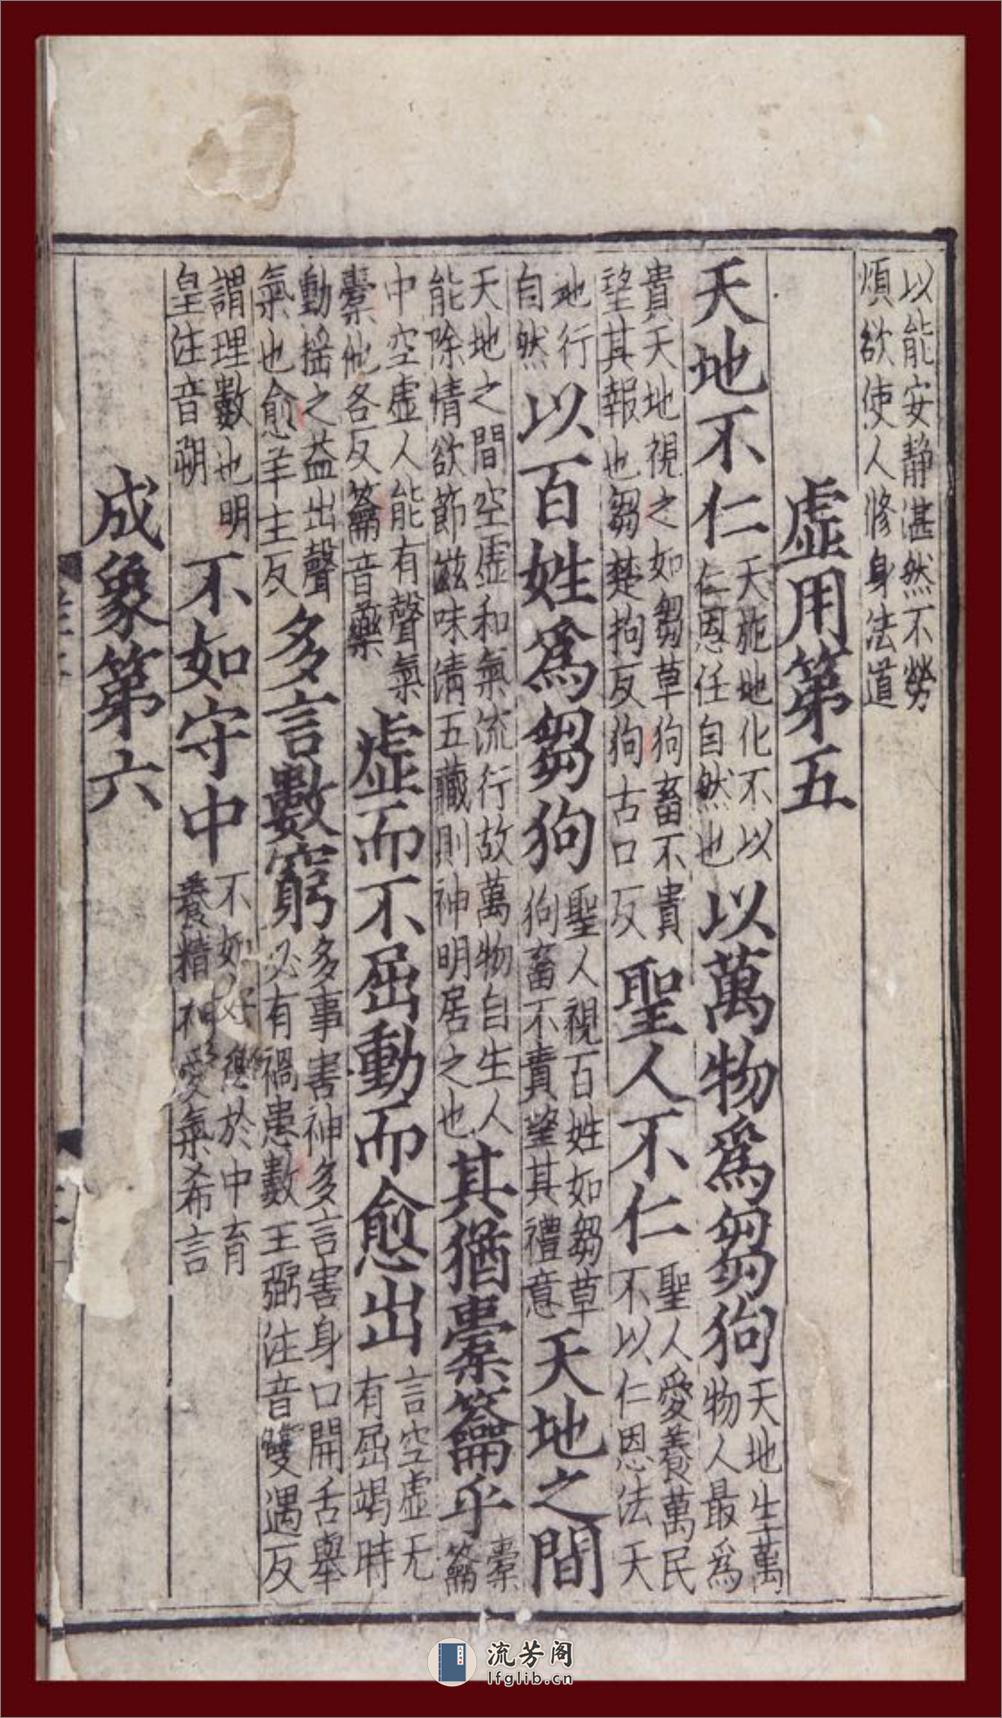 以能安靜湛然不勞煩欲使人修身法道
虛用第五
天地不仁天施地化不以仁恩任自然也以萬物爲芻狗天地生萬物人最爲
貴天地視之如芻草狗畜不貴望其報也芻楚拘反狗古口反聖人不仁聖人愛養萬民不以仁恩法天
地行自然以百姓爲芻狗聖人視百姓如芻草狗畜不責望其禮意天地之間
天地之間空虛和氣流行故萬物自生人能除情欲節滋味清五藏則神明居之也其猶橐籥乎橐籥
中空虛人能有聲氣橐他各反籥音藥虛而不屈動而愈出言空虛无有屈竭時
動揺之益出聲氣也愈羊主反多言數窮多事害神多言害身口開舌舉必有禍患數王弼注音雙遇反
謂理數也明皇注音朔不如守中不如好德於中育養精神愛氣希言
成象第六
流芳阁
lfglib.cn